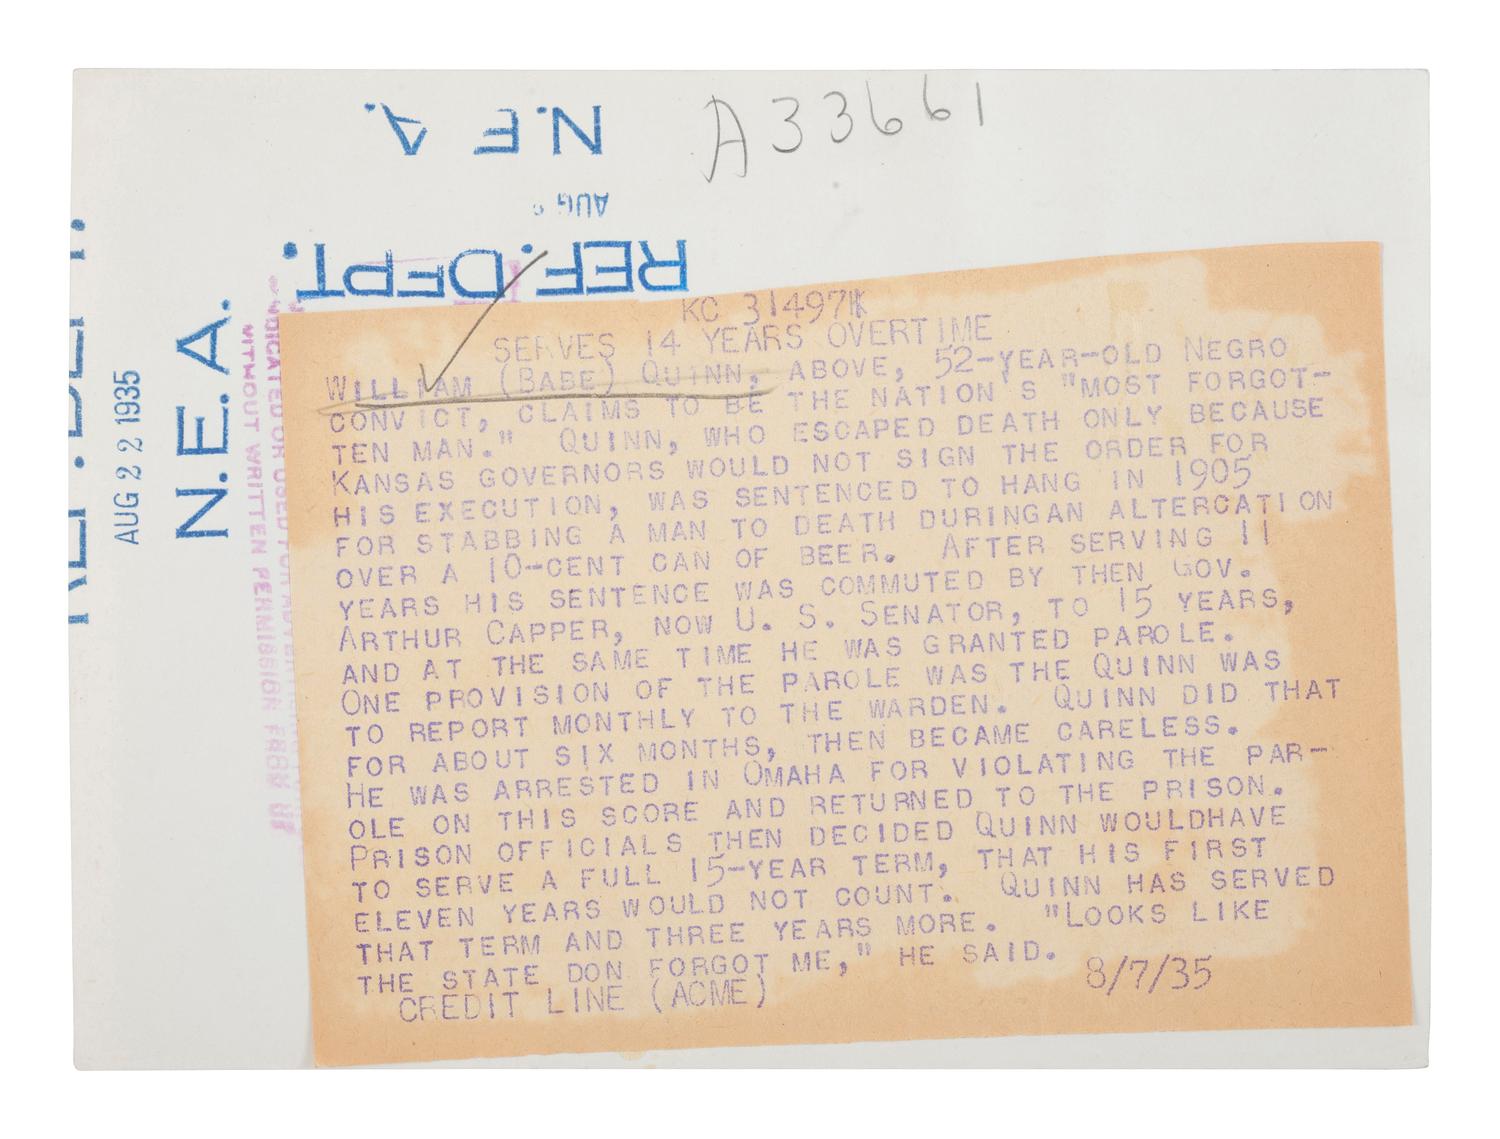 A33661
N.E.A.
AUG
REF. DEPT.
AUG 22 1935
N.E.A.
WITHOUT WRITTEN PERMISSION
KC 314971
SERVES 14 YEARS OVERTIME
WILLIAM (BABE) QUINN, ABOVE, 52-YEAR-OLD NEGRO
CONVICT, CLAIMS TO BE THE NATION'S "MOST FORGOT-
TEN MAN." QUINN, WHO ESCAPED DEATH ONLY BECAUSE
KANSAS GOVERNORS WOULD NOT SIGN THE ORDER FOR
HIS EXECUTION, WAS SENTENCED TO HANG IN 1905
FOR STABBING A MAN TO DEATH DURINGAN ALTERCATION
OVER A 10-CENT CAN OF BEER. AFTER SERVING 11
YEARS HIS SENTENCE WAS COMMUTED BY THEN GOV.
ARTHUR CAPPER, NOW U. S. SENATOR, TO 15 YEARS,
AND AT THE SAME TIME HE WAS GRANTED PAROLE.
ONE PROVISION OF THE PAROLE WAS THE QUINN WAS
TO REPORT MONTHLY TO THE WARDEN. QUINN DID THAT
FOR ABOUT SIX MONTHS, THEN BECAME CARELESS.
HE WAS ARRESTED IN OMAHA FOR VIOLATING THE PAR-
OLE ON THIS SCORE AND RETURNED TO THE PRISON.
PRISON OFFICIALS THEN DECIDED QUINN WOULDHAVE
TO SERVE A FULL 15-YEAR TERM, THAT HIS FIRST
ELEVEN YEARS WOULD NOT COUNT. QUINN HAS SERVED
THAT TERM AND THREE YEARS MORE. "LOOKS LIKE
THE STATE DON FORGOT ME," HE SAID.
CREDIT LINE (ACME) 8/7/35